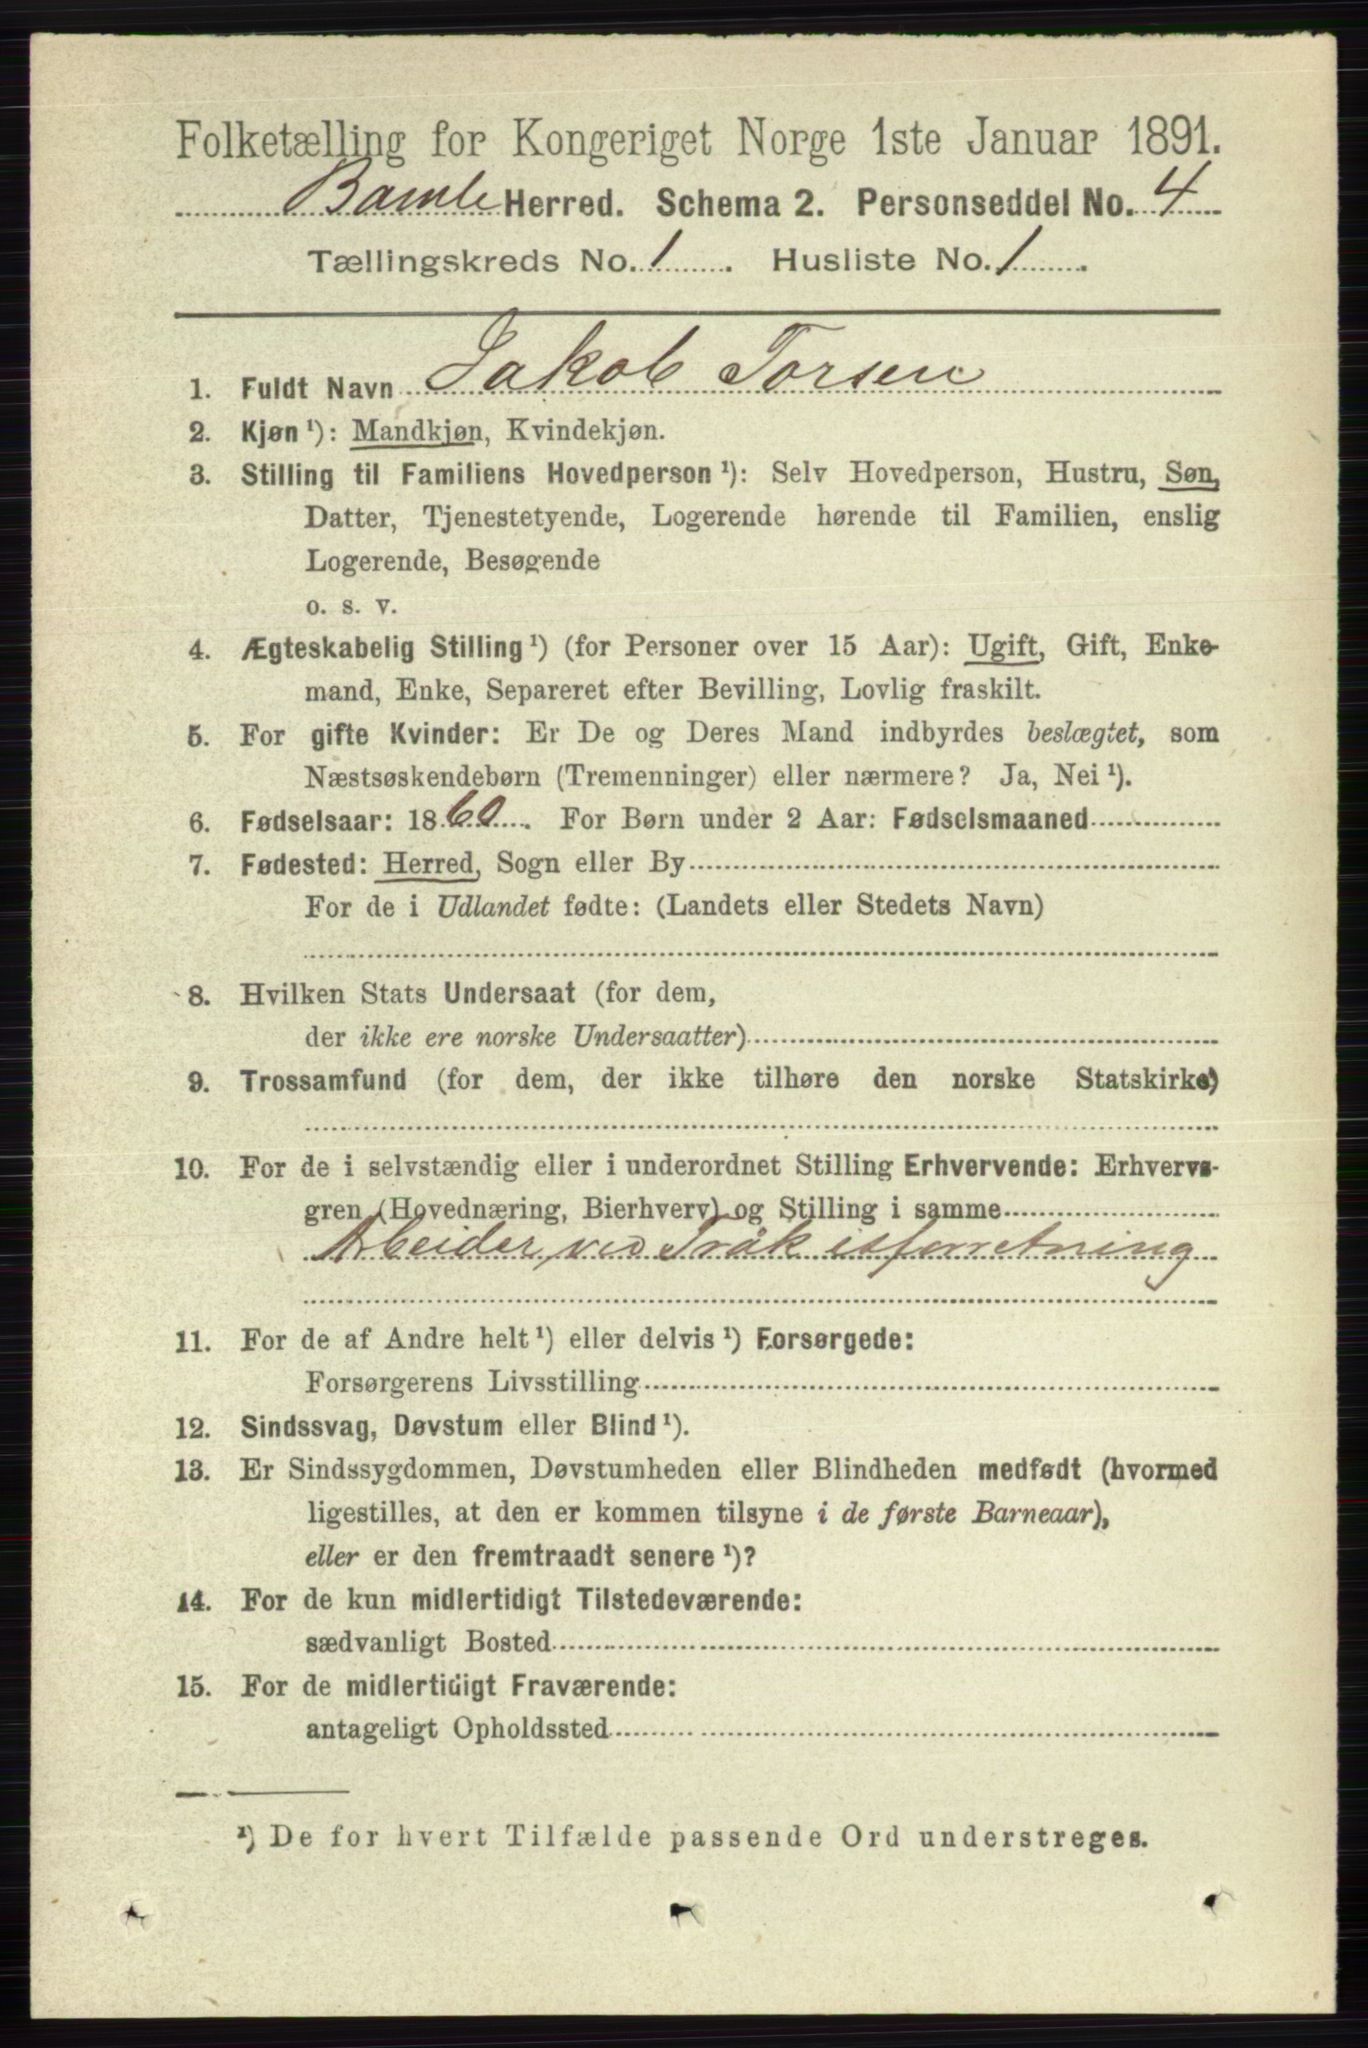 Folketælling for Kongeriget Norge 1ste Januar 1891.
Bamle Herred. Schema 2. Personseddel No. 4
Tællingskreds No. 1. Husliste No. 1.
1. Fuldt Navn Jakob Torsen
2. Kjøn ¹): Mandkjøn, Kvindekjøn.
3. Stilling til Familiens Hovedperson ¹): Selv Hovedperson, Hustru, Søn,
Datter, Tjenestetyende, Logerende hørende til Familien, enslig
Logerende, Besøgende
o. s. v.
4. Ægteskabelig Stilling ¹) (for Personer over 15 Aar): Ugift, Gift, Enke-
mand, Enke, Separeret efter Bevilling, Lovlig fraskilt.
5. For gifte Kvinder: Er De og Deres Mand indbyrdes beslægtet, som
Næstsøskendebørn (Tremenninger) eller nærmere? Ja, Nei ¹).
6. Fødselsaar: 1860. For Børn under 2 Aar: Fødselsmaaned
7. Fødested: Herred, Sogn eller By
For de i Udlandet fødte: (Landets eller Stedets Navn)
8. Hvilken Stats Undersaat (for dem,
der ikke ere norske Undersaatter)
9. Trossamfund (for dem, der ikke tilhøre den norske Statskirke)
10. For de i selvstændig eller i underordnet Stilling Erhvervende: Erhvervs-
gren (Hovednæring, Bierhverv) og Stilling i samme
Arbeider ved Tråk isforretning
11. For de af Andre helt ¹) eller delvis ¹) Forsørgede:
Forsørgerens Livsstilling
12. Sindssvag, Døvstum eller Blind ¹).
13. Er Sindssygdommen, Døvstumheden eller Blindheden medfødt (hvormed
ligestilles, at den er kommen tilsyne i de første Barneaar),
eller er den fremtraadt senere ¹)?
14. For de kun midlertidigt Tilstedeværende:
sædvanligt Bosted
15. For de midlertidigt Fraværende:
antageligt Opholdssted
¹) De for hvert Tilfælde passende Ord understreges.